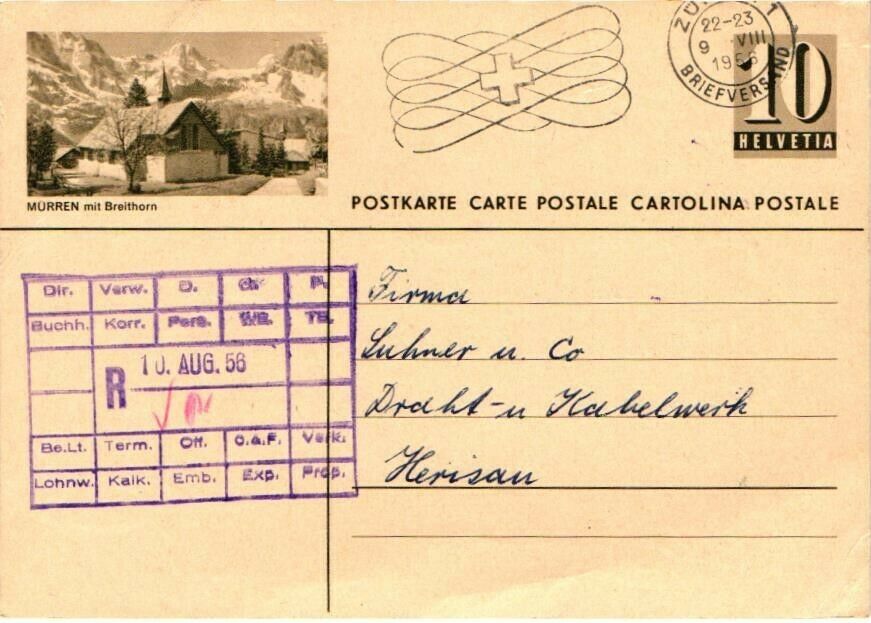 ZÜRICH 1
22-23
9. VIII
1956
BRIEFVERSAND
10
HELVETIA
MÜRREN mit Breithorn
POSTKARTE CARTE POSTALE CARTOLINA POSTALE
Dir. Verw. D. P.
Buchh. Korr. Pers. TB.
R 10. AUG. 56
Be.Lt. Term. Off. O.a.F. Verk.
Lohnw. Kalk. Emb. Exp. Prop.
Firma
Suhner u. Co
Draht- u Kabelwerk
Herisau